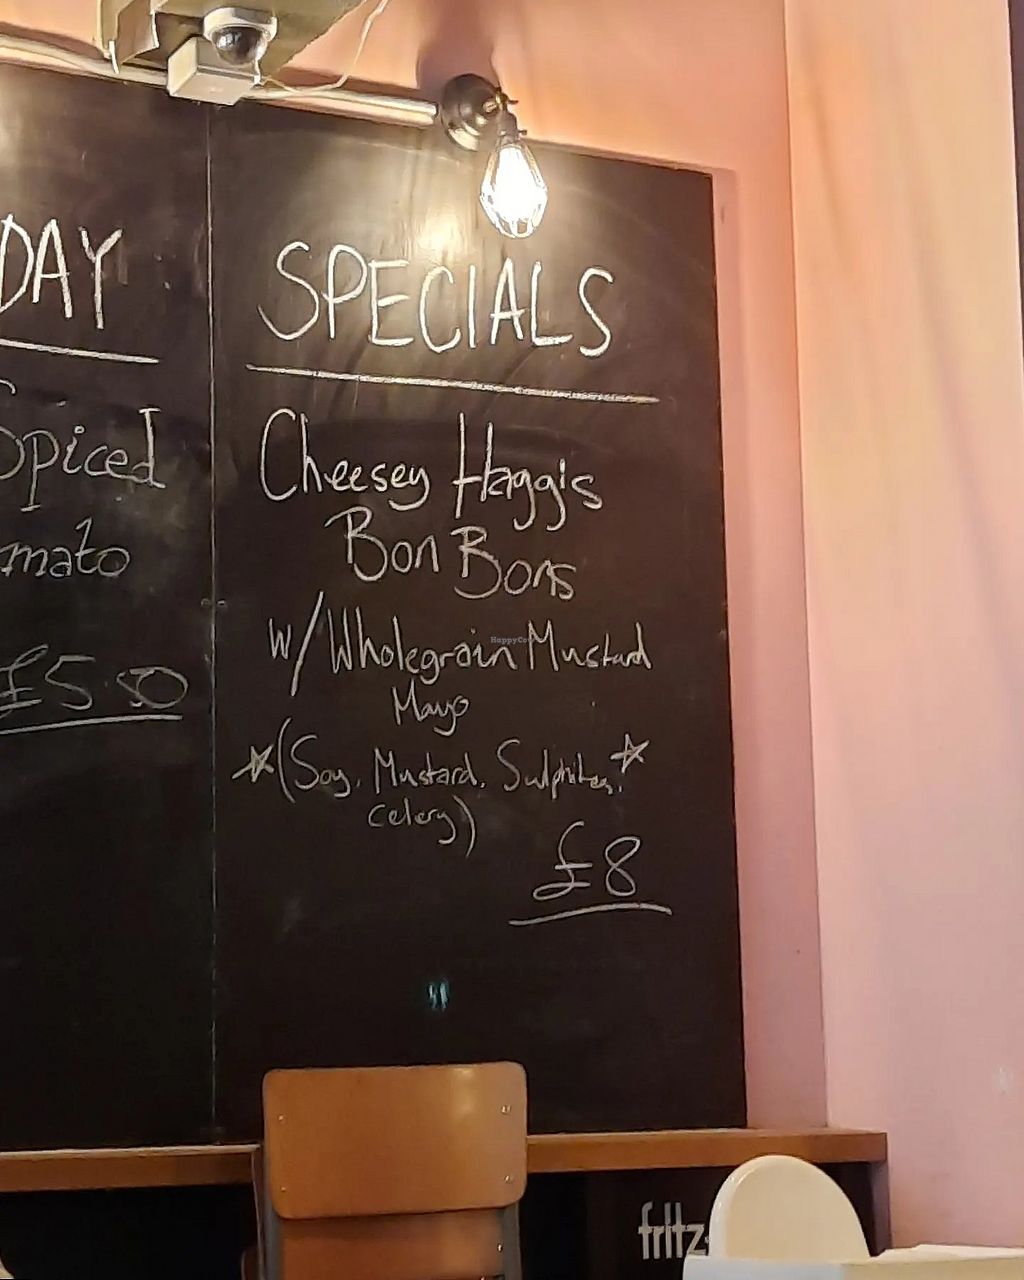 DAY
Spiced
mato
£5.50
SPECIALS
Cheesey Haggis
Bon Bons
w/Wholegrain Mustard
Mayo
(Soy, Mustard, Sulphites,
Celery)
£8
HappyCow
fritz